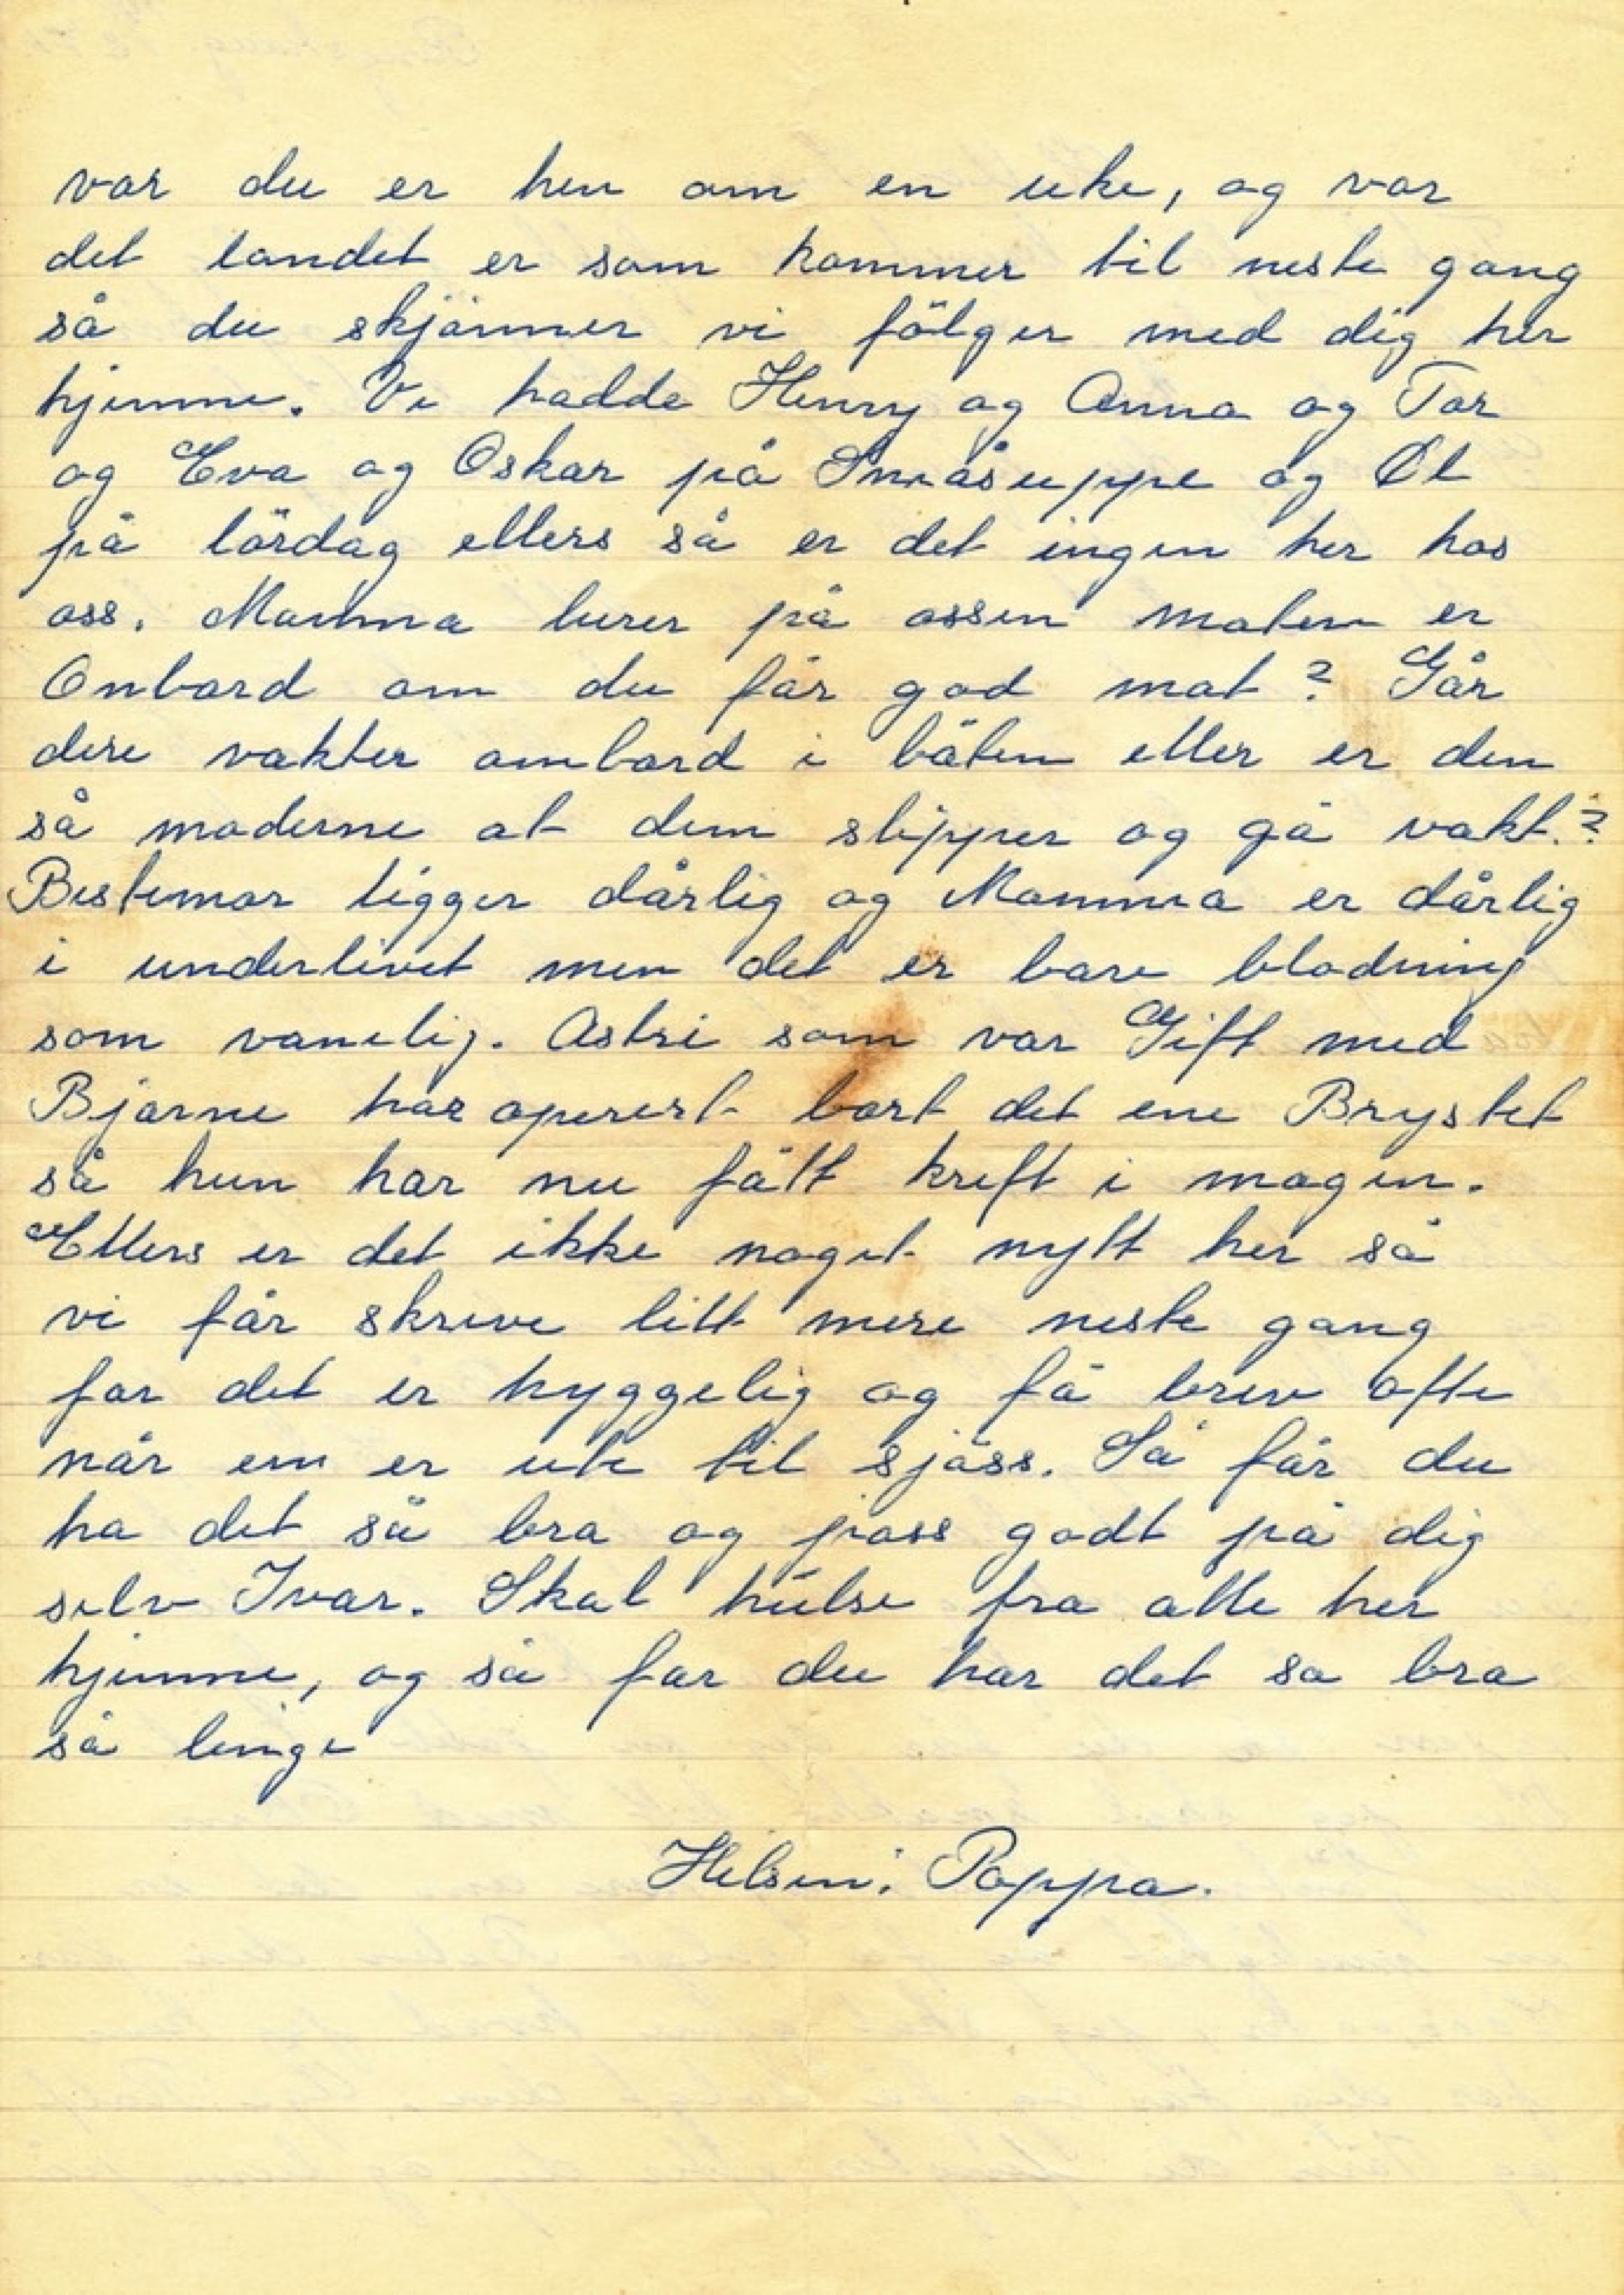 var du er hen om en uke, og var
det landet er som kommer til neste gang
så du skjönner vi fölger med dig her
hjemme. Vi hadde Henry og Anna og Tor
og Eva og Oskar på Småsuppe og Öl
på lördag ellers så er det ingen her hos
oss. Mamma lurer på ossen maten er
Onbord om du får god mat? Går
dere vakter ombord i båten eller er den
så moderne at dem slipper og gå vakt.?
Bestemor ligger dårlig og Mamma er dårlig
i underlivet men det er bare blödning
som vanelig. Astri som var Gift med
Bjarne har operert bort det ene Brystet
så hun har nu fått kreft i magen.
Ellers er det ikke noget nytt her så
vi får skreve litt mere neste gang
for det er hyggelig og få brev ofte
når em er ute til sjöss. Så får du
ha det så bra og pass godt på dig
selv Ivar. Skal hilse fra alle her
hjemme, og så far du har det sa bra
så lenge
Hilsen: Pappa.